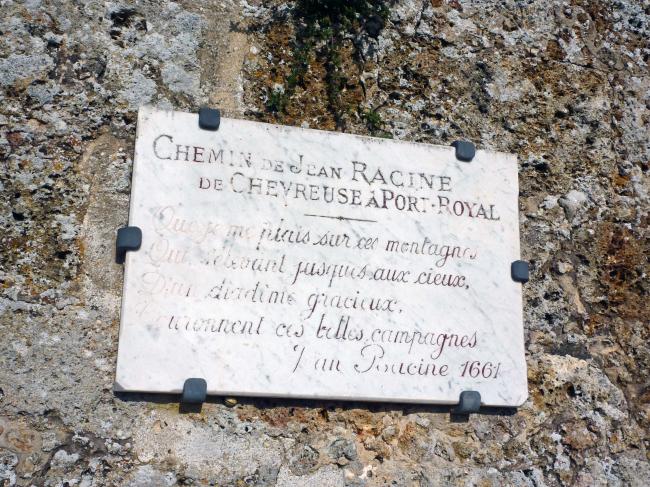 CHEMIN DE JEAN RACINE
DE CHEVREUSE À PORT-ROYAL
Que je me plais sur ces montagnes
Qui s'élevant jusques aux cieux,
D'un diadème gracieux,
Couronnent ces belles campagnes
Jean Racine 1661